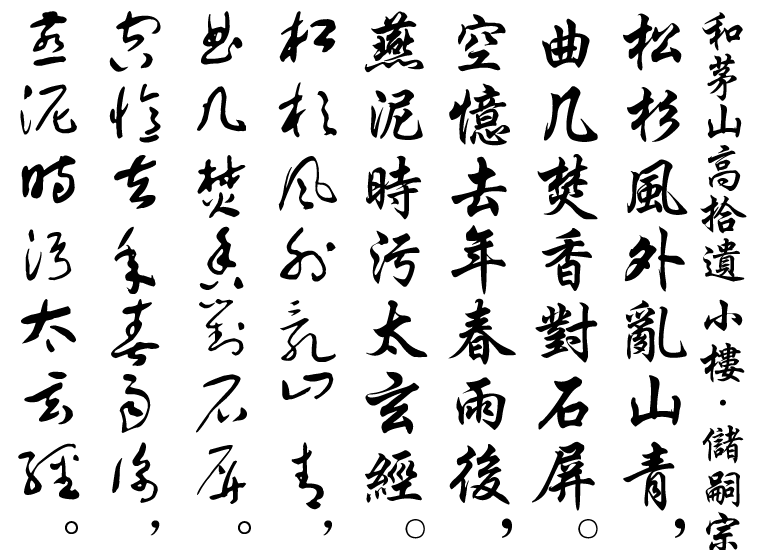 和茅山高拾遺 小樓·儲嗣宗
松杉風外亂山青，
曲几焚香對石屏。
空憶去年春雨後，
燕泥時污太玄經。
松杉风外乱山青，
曲几焚香对石屏。
空忆去年春雨后，
燕泥时污太玄经。